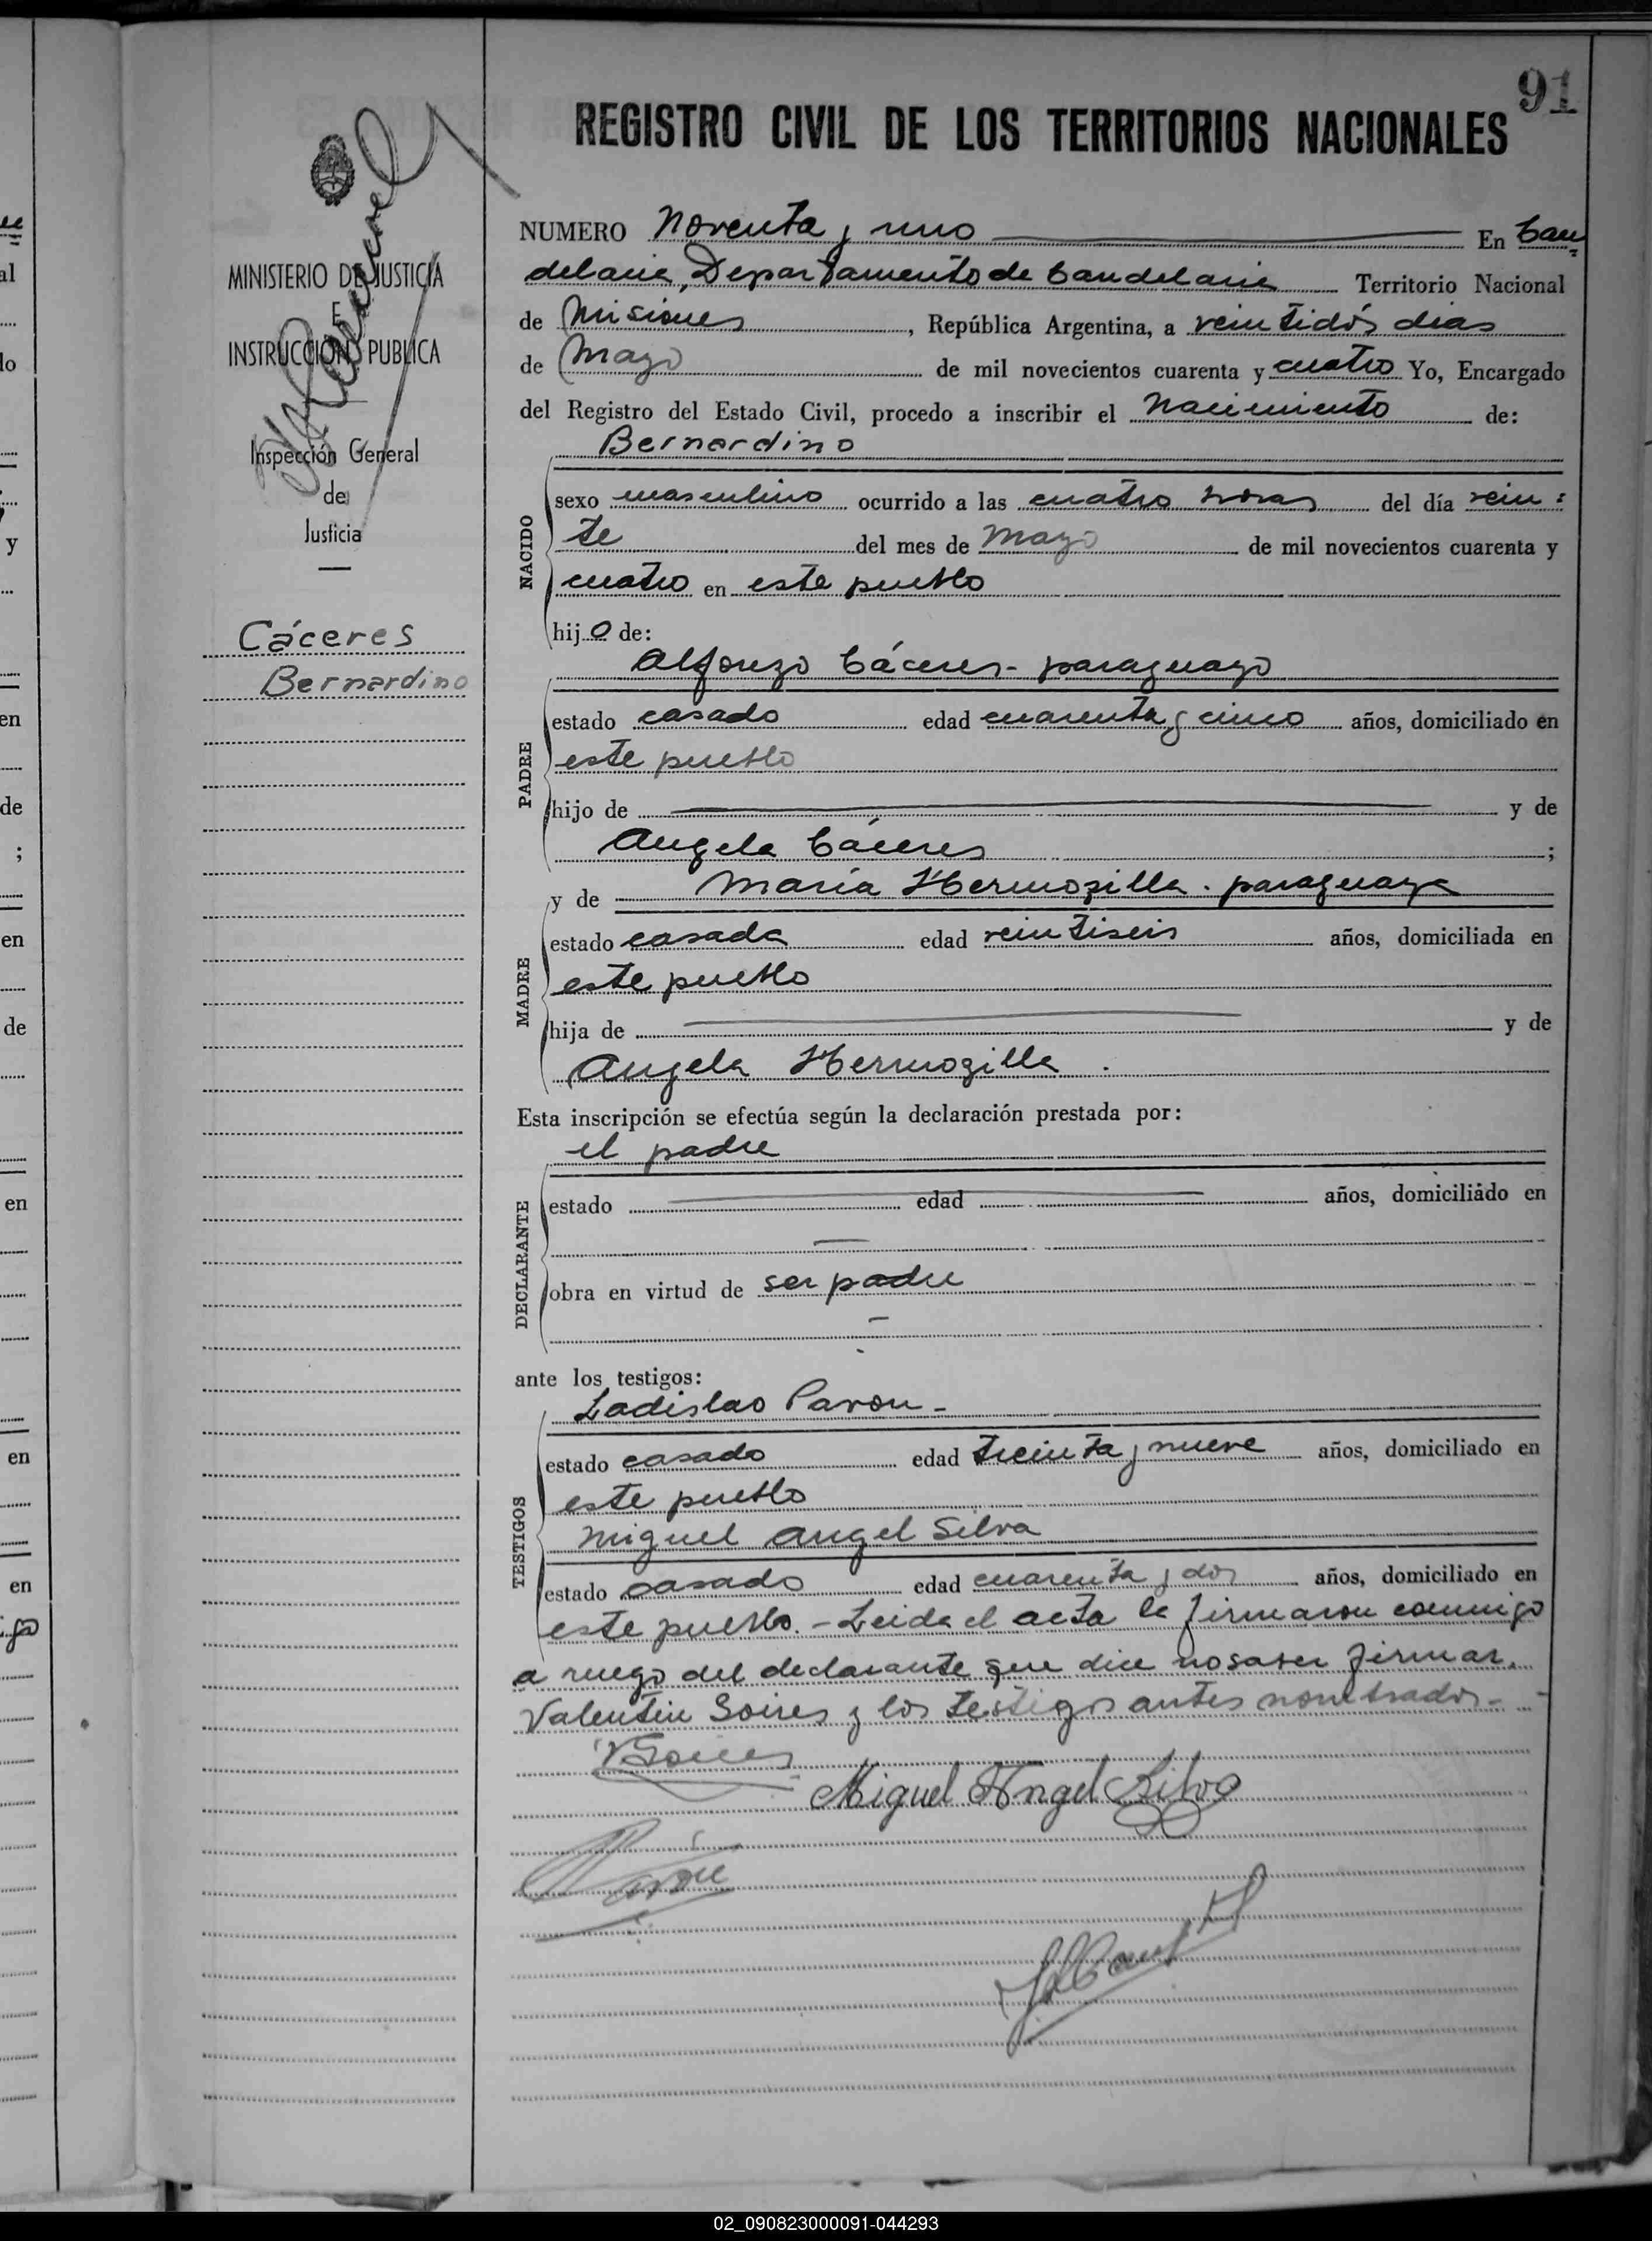 91
REGISTRO CIVIL DE LOS TERRITORIOS NACIONALES
MINISTERIO DE JUSTICIA
E
INSTRUCCIÓN PUBLICA
Inspección General
de
Justicia
Cáceres
Bernardino
NUMERO Noventa y uno En Can=
delaria, Departamento de Candelaria Territorio Nacional
de Misiones, República Argentina, a veintidós dias
de Mayo de mil novecientos cuarenta y cuatro Yo, Encargado
del Registro del Estado Civil, procedo a inscribir el Nacimiento de:
Bernardino
NACIDO
sexo masculino ocurrido a las cuatro horas del día vein=
te del mes de Mayo de mil novecientos cuarenta y
cuatro en este pueblo
hijo de:
Alfonzo Cáceres - paraguayo
PADRE
estado casado edad cuarenta y cinco años, domiciliado en
este pueblo
hijo de y de
Angela Cáceres ;
y de Maria Hermozilla. paraguaya
MADRE
estado casada edad veintiseis años, domiciliada en
este pueblo
hija de y de
Angela Hermozilla.
Esta inscripción se efectúa según la declaración prestada por:
el padre
DECLARANTE
estado edad años, domiciliado en
obra en virtud de ser padre
ante los testigos:
Ladislao Pavon -
TESTIGOS
estado casado edad treinta y nueve años, domiciliado en
este pueblo
Miguel Angel Silva
estado casado edad cuarenta y dos años, domiciliado en
este pueblo. - Leida el acta la firmaron conmigo
a ruego del declarante que dice no saber firmar,
Valentin Soires y los testigos antes nombrados -
VSoires
Miguel Angel Silva
Pavon
02_090823000091-044293